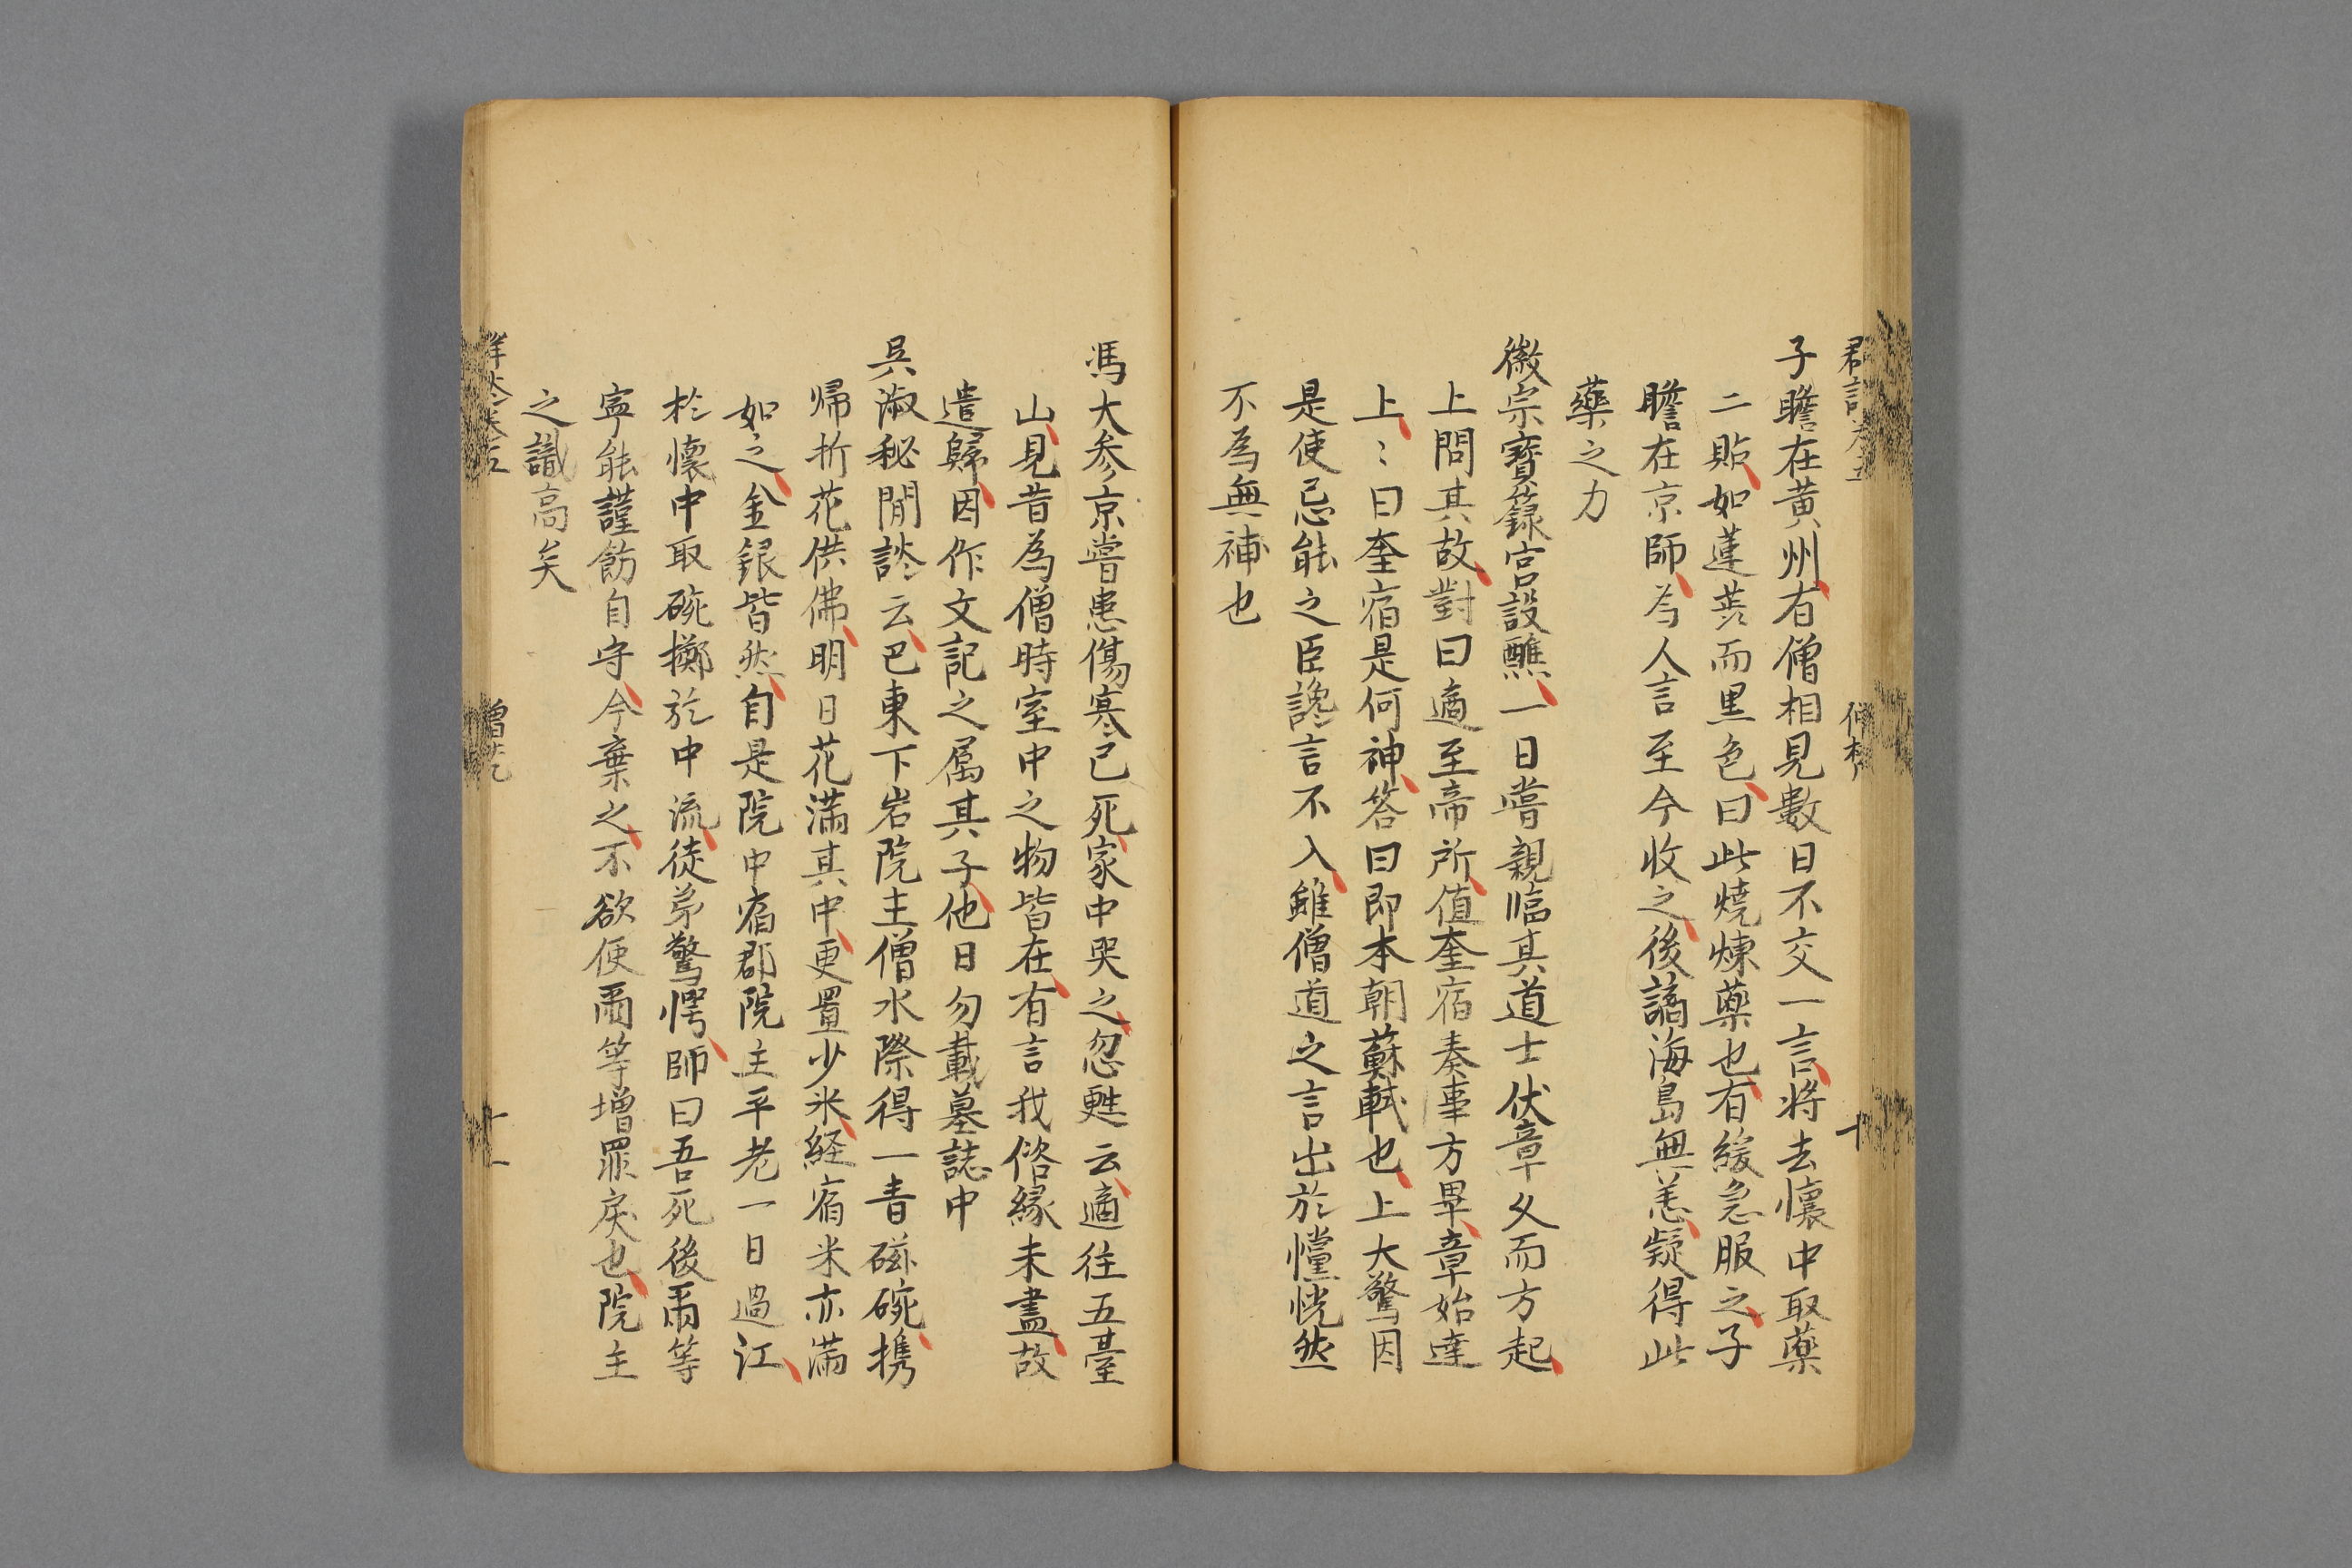 子瞻在黄州有僧相見數日不交一言将去懷中取藥
二貼如蓮蕋而黒色曰此燒煉藥也有緩急服之子
瞻在京師為人言至今收之後謫海島無恙疑得此
藥之力
徽宗寳籙宮設醮一日嘗親臨其道士伏章乆而方起
上問其故對曰適至帝所值奎宿奏事方畢章始達
上〻曰奎宿是何神答曰即本朝蘇軾也上大驚因
是使忌能之臣讒言不入雖僧道之言出於戃恍然
不為無補也
馮大参京嘗患傷寒已死家中哭之忽甦云適往五臺
山見昔為僧時室中之物皆在有言我俗縁未盡故
遣歸因作文記之属其子他日勿載墓誌中
吳淑秘閒談云巴東下岩院主僧水際得一青磁碗携
帰折花供佛明日花滿其中更置少米経宿米亦滿
如之金銀皆然自是院中富郡院主平老一日過江
於懷中取碗擲於中流徒弟驚愕師曰吾死後爾等
寧能謹飭自守今棄之不欲使爾等增罪戾也院主
之識高矣
十
十一